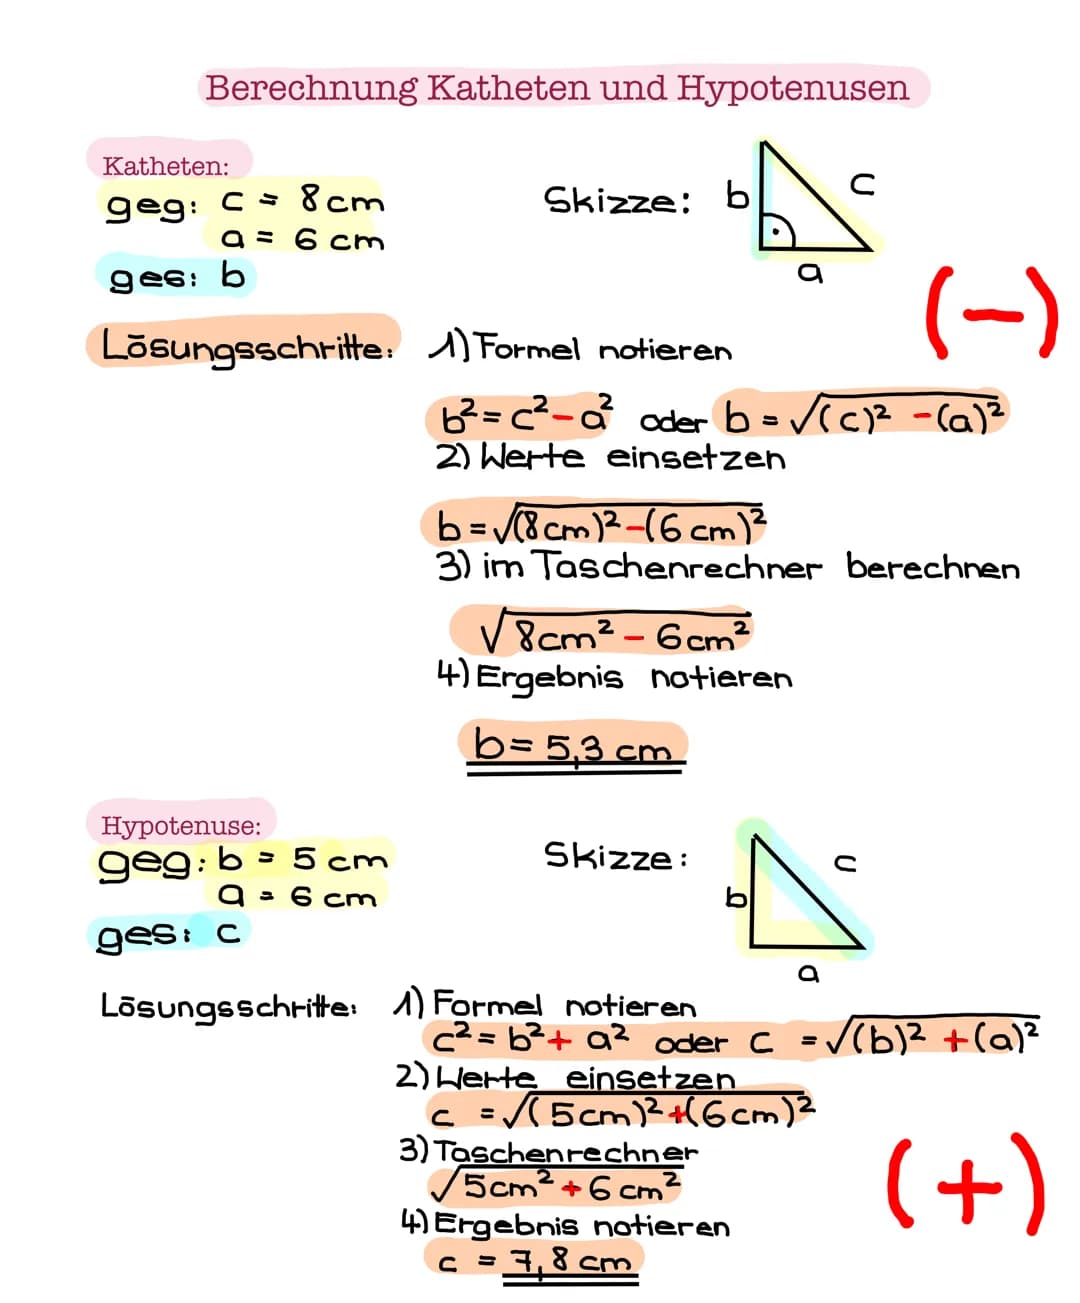 Berechnung Katheten und Hypotenusen
Katheten:
geg: c = 8 cm
a = 6 cm
ges: b
Skizze: b c
a
(-)
Lösungsschritte: 1) Formel notieren
b² = c² - a² oder b = √(c)² - (a)²
2) Werte einsetzen
b = √(8cm)² - (6 cm)²
3) im Taschenrechner berechnen
√8cm² - 6cm²
4) Ergebnis notieren
b = 5,3 cm
Hypotenuse:
geg: b = 5 cm
a = 6 cm
ges: c
Skizze: c
b
a
Lösungsschritte: 1) Formel notieren
c² = b² + a² oder c = √(b)² + (a)²
2) Werte einsetzen
c = √(5cm)² + (6cm)²
3) Taschenrechner
√5cm² + 6 cm²
(+)
4) Ergebnis notieren
c = 7,8 cm